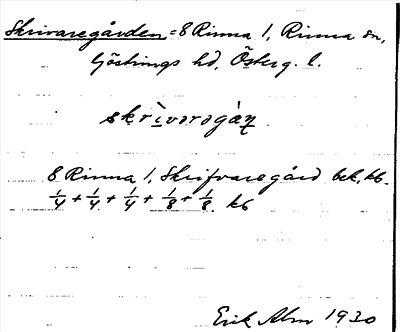 Skrivaregården = 8 Rinna 1, Rinna sn,
Göstrings hd, Österg. l.
skrìvarəgàn̥
8 Rinna 1, Skrifvaregård bek. kb.
1/4 + 1/4 + 1/4 + 1/8 + 1/8 kb
Erik Alm 1930